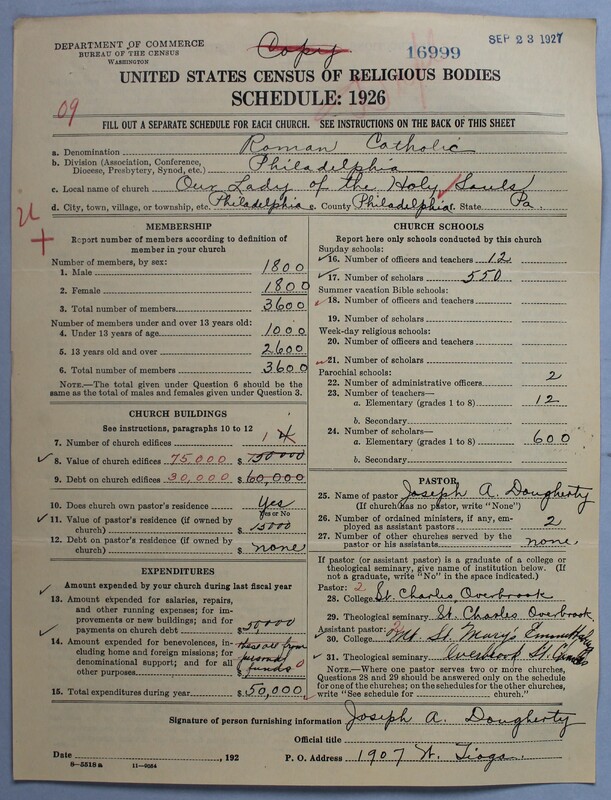 DEPARTMENT OF COMMERCE
BUREAU OF THE CENSUS
WASHINGTON
Copy
16999
SEP 23 1927
UNITED STATES CENSUS OF RELIGIOUS BODIES
SCHEDULE: 1926
09
FILL OUT A SEPARATE SCHEDULE FOR EACH CHURCH. SEE INSTRUCTIONS ON THE BACK OF THIS SHEET
a. Denomination Roman Catholic
b. Division (Association, Conference, Diocese, Presbytery, Synod, etc.) Philadelphia
c. Local name of church Our Lady of the Holy Souls
d. City, town, village, or township, etc. Philadelphia e. County Philadelphia f. State Pa.
MEMBERSHIP
Report number of members according to definition of
member in your church
Number of members, by sex:
1. Male 1800
2. Female 1800
3. Total number of members 3600
Number of members under and over 13 years old:
4. Under 13 years of age 1000
5. 13 years old and over 2600
6. Total number of members 3600
NOTE.—The total given under Question 6 should be
same as the total of males and females given under Question 3.
CHURCH BUILDINGS
See instructions, paragraphs 10 to 12
7. Number of church edifices 1
8. Value of church edifices 75,000 $ 150000
9. Debt on church edifices 30,000 $ 60,000
10. Does church own pastor's residence Yes
Yes or No
11. Value of pastor's residence (if owned by
church) $ 15000
12. Debt on pastor's residence (if owned by
church) $ none
EXPENDITURES
Amount expended by your church during last fiscal year
13. Amount expended for salaries, repairs,
and other running expenses; for im-
provements or new buildings; and for
payments on church debt $ 50,000
14. Amount expended for benevolences, in-
cluding home and foreign missions; for
denominational support; and for all
other purposes $ funds 0
15. Total expenditures during year $ 50,000
CHURCH SCHOOLS
Report here only schools conducted by this church
Sunday schools:
16. Number of officers and teachers 12
17. Number of scholars 550
Summer vacation Bible schools:
18. Number of officers and teachers
19. Number of scholars
Week-day religious schools:
20. Number of officers and teachers
21. Number of scholars
Parochial schools:
22. Number of administrative officers 2
23. Number of teachers—
a. Elementary (grades 1 to 8) 12
b. Secondary
24. Number of scholars—
a. Elementary (grades 1 to 8) 600
b. Secondary
PASTOR
25. Name of pastor Joseph A. Dougherty
(If church has no pastor, write "None")
26. Number of ordained ministers, if any, em-
ployed as assistant pastors 2
27. Number of other churches served by the
pastor or his assistants none.
If pastor (or assistant pastor) is a graduate of a college or
theological seminary, give name of institution below. (If
not a graduate, write "No" in the space indicated.)
Pastor: 2
28. College St. Charles, Overbrook
29. Theological seminary St. Charles Overbrook.
Assistant pastor:
30. College Mt St. Marys Emmittsburg
31. Theological seminary Overbrook St. Charles
NOTE.—Where one pastor serves two or more churches,
Questions 28 and 29 should be answered only on the schedule
for one of the churches; on the schedules for the other churches,
write "See schedule for church."
Signature of person furnishing information Joseph A. Dougherty
Official title
Date , 192 P. O. Address 1907 W. Tioga
8-5518 a 11-9554